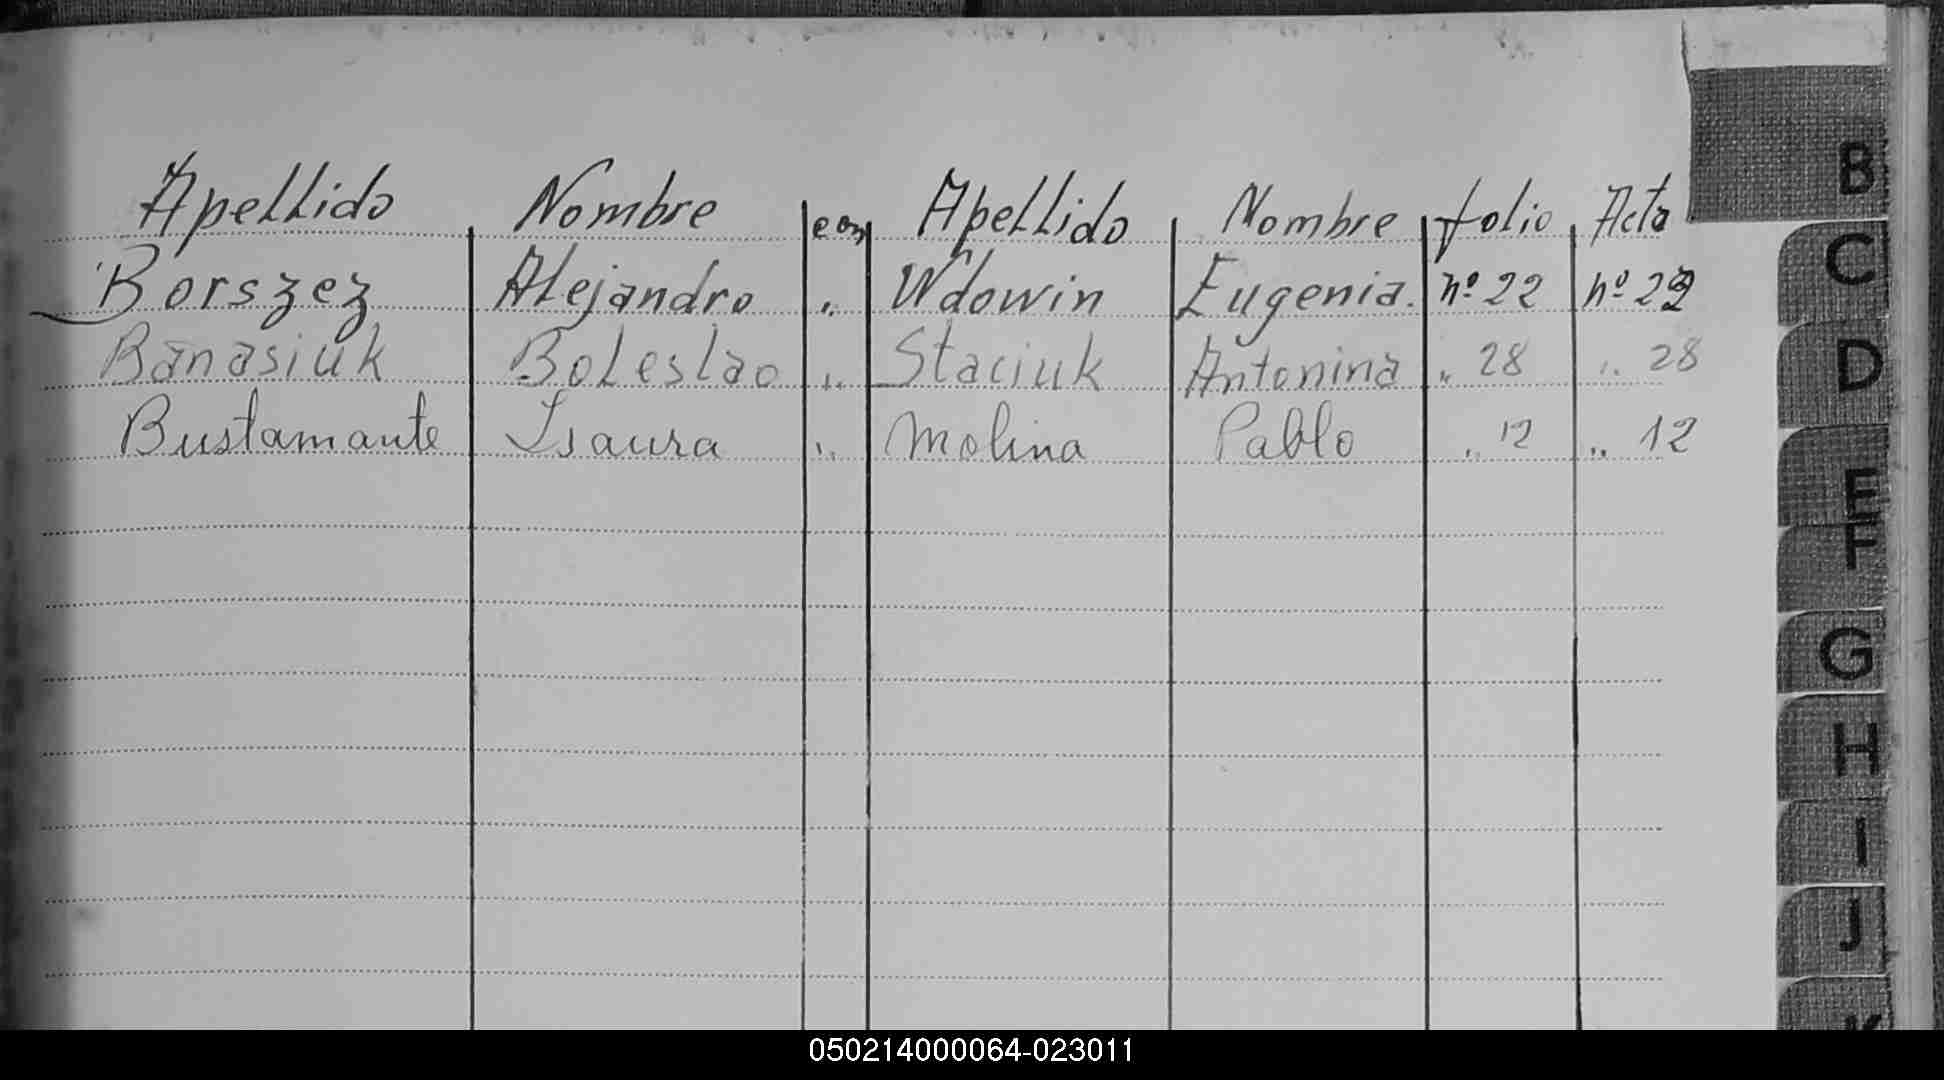 Apellido Nombre con Apellido Nombre folio Acta
Borszez Alejandro " Wdowin Eugenia. nº 22 nº 22
Banasiuk Boleslao " Staciuk Antonina " 28 " 28
Bustamante Isaura " Molina Pablo " 12 " 12
B
C
D
E
F
G
H
I
J
K
050214000064-023011